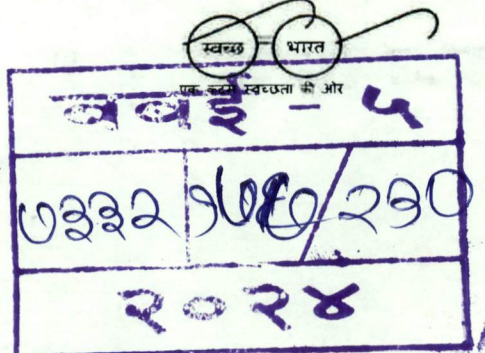 स्वच्छ भारत
एक कदम स्वच्छता की ओर
बबई - ५
७३३२ /२३०
२०२४